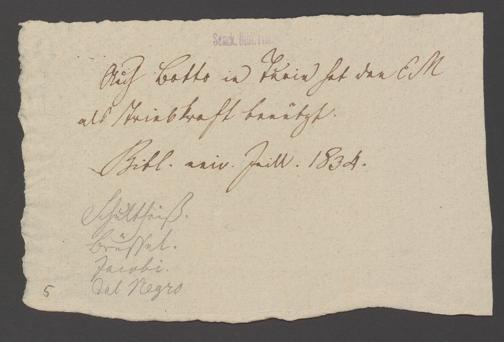 Senck. Bibl. Ffm.
Auch Botto in Turin hat den EM
als Triebkraft benützt.
Bibl. univ. Juill. 1834.
Schultheiß.
Brüssel.
Jacobi.
dal Negro
5